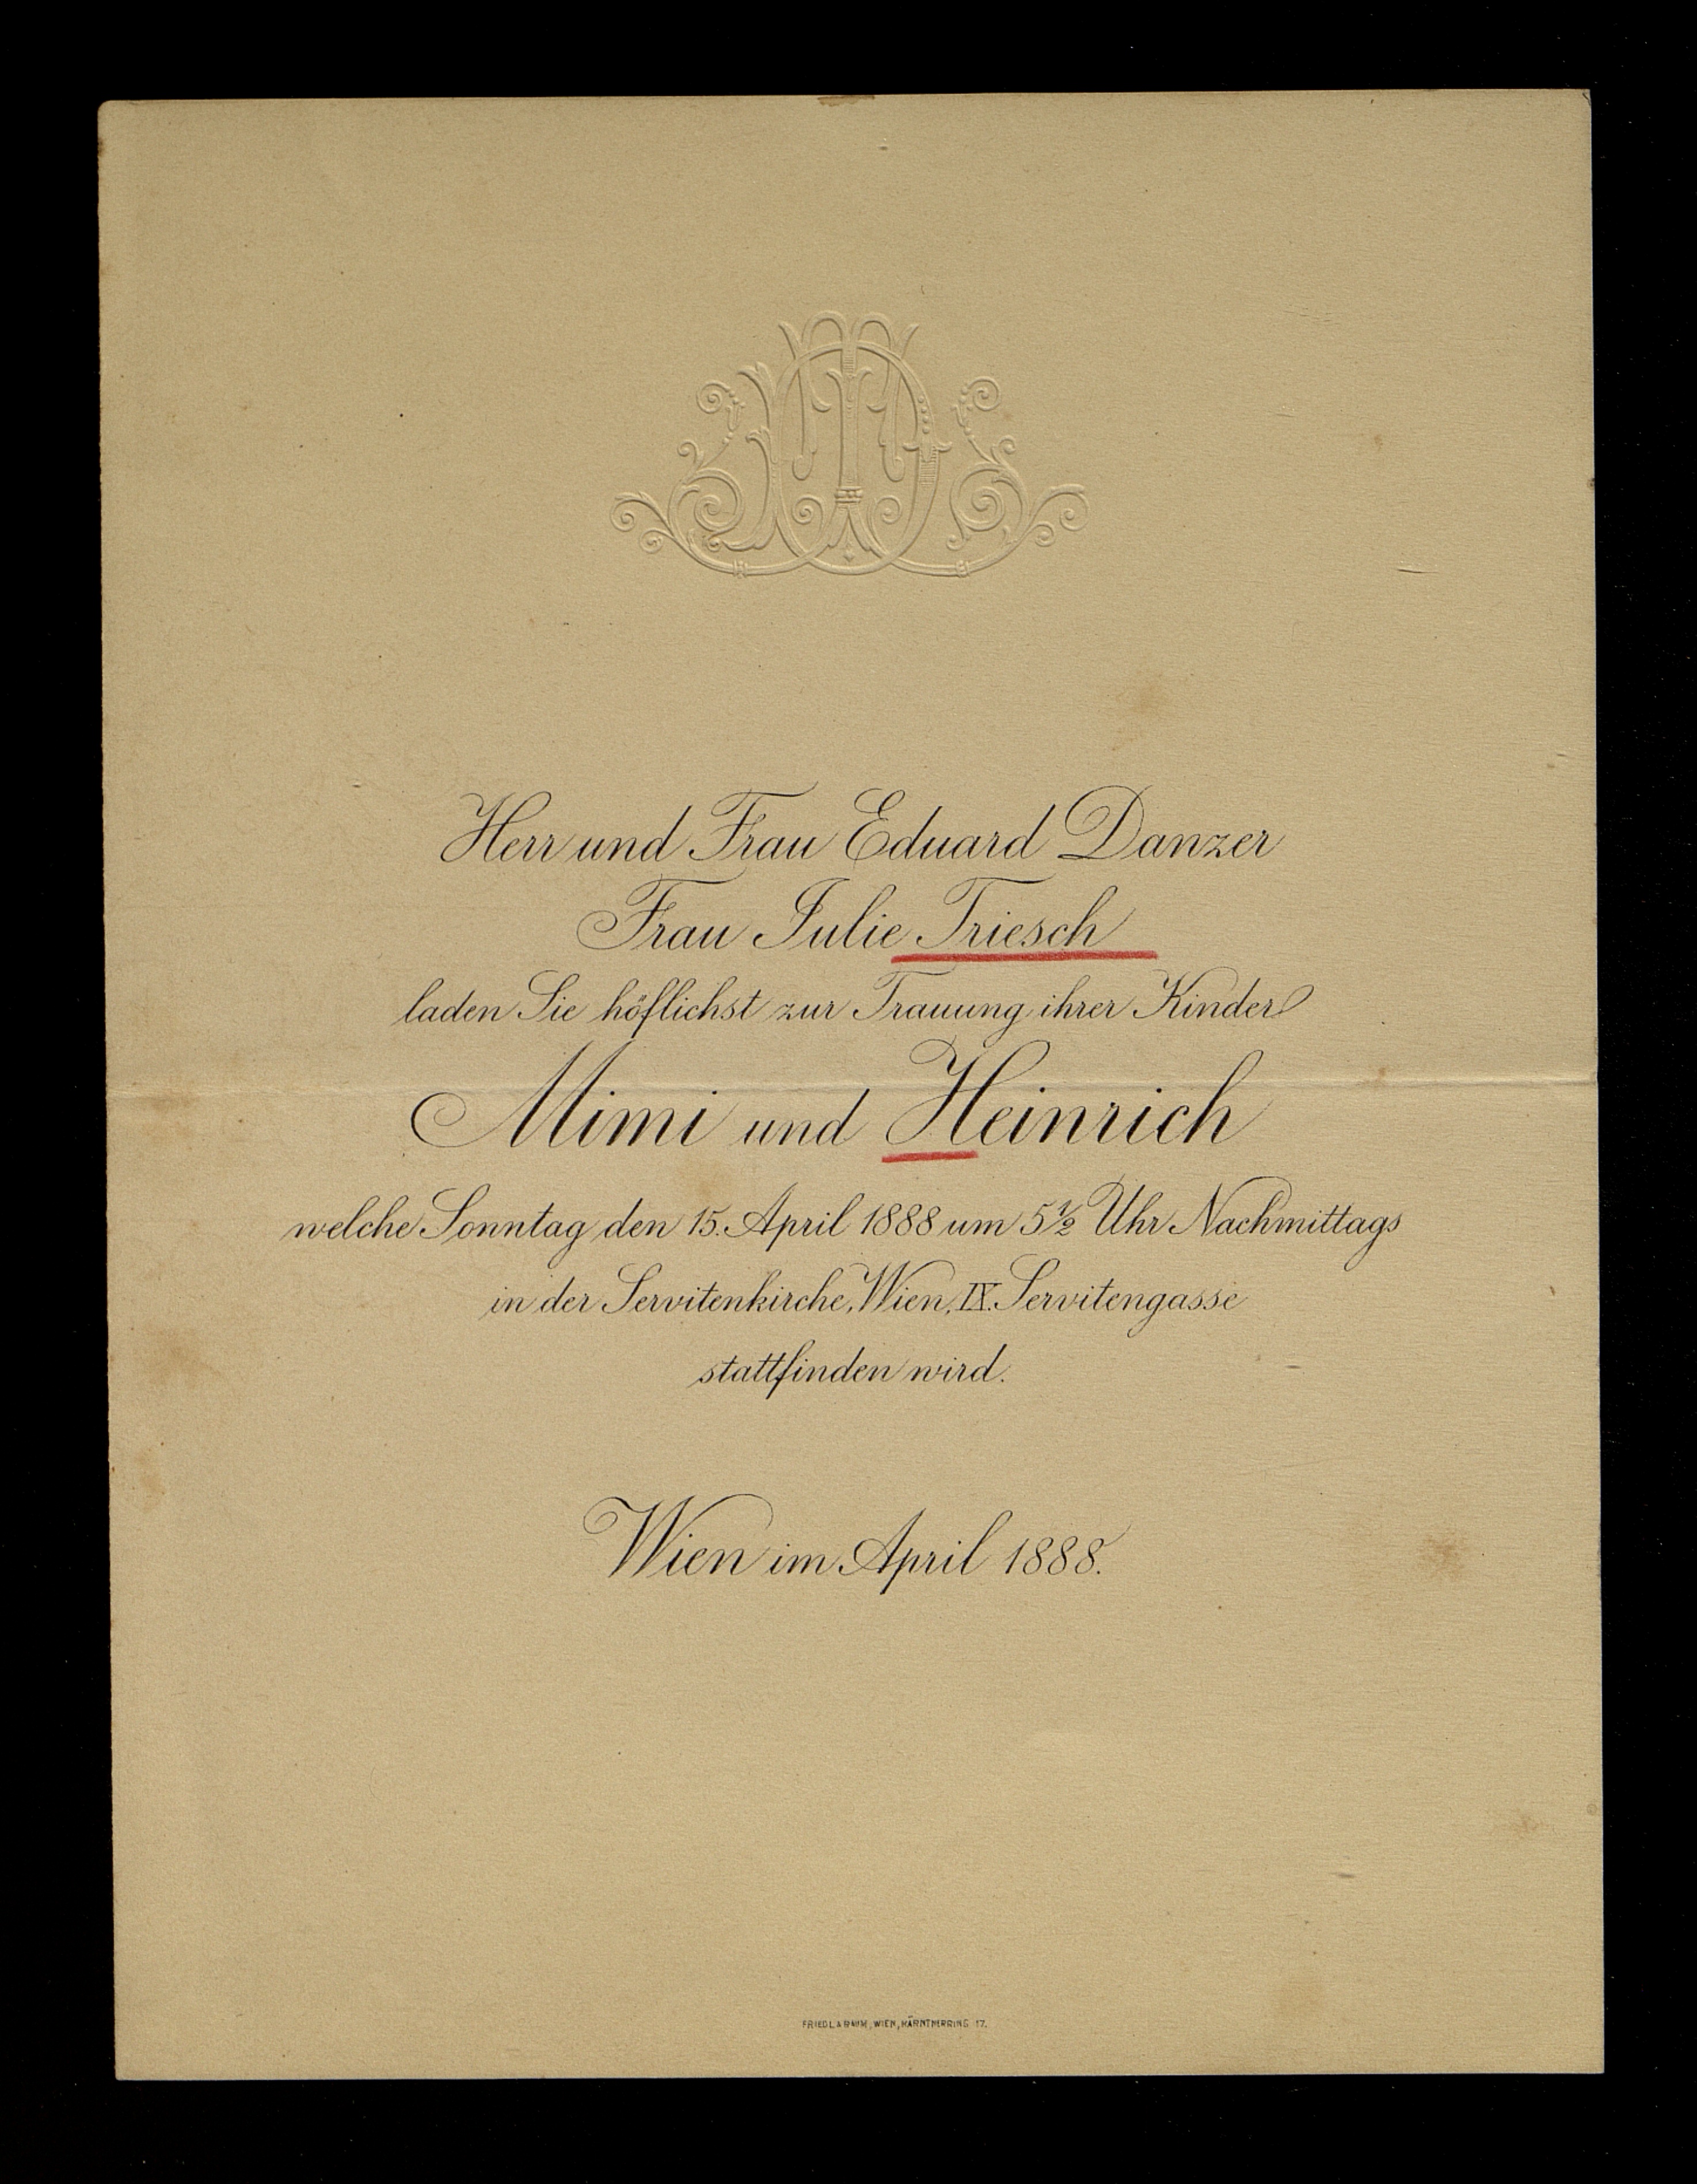 Herr und Frau Eduard Danzer
Frau Julie Triesch
laden Sie höflichst zur Trauung ihrer Kinder
Mimi und Heinrich
welche Sonntag den 15. April 1888 um 5½ Uhr Nachmittags
in der Servitenkirche, Wien, IX. Servitengasse
stattfinden wird.
Wien im April 1888.
WIEN, KÄRNTNERRING 17.